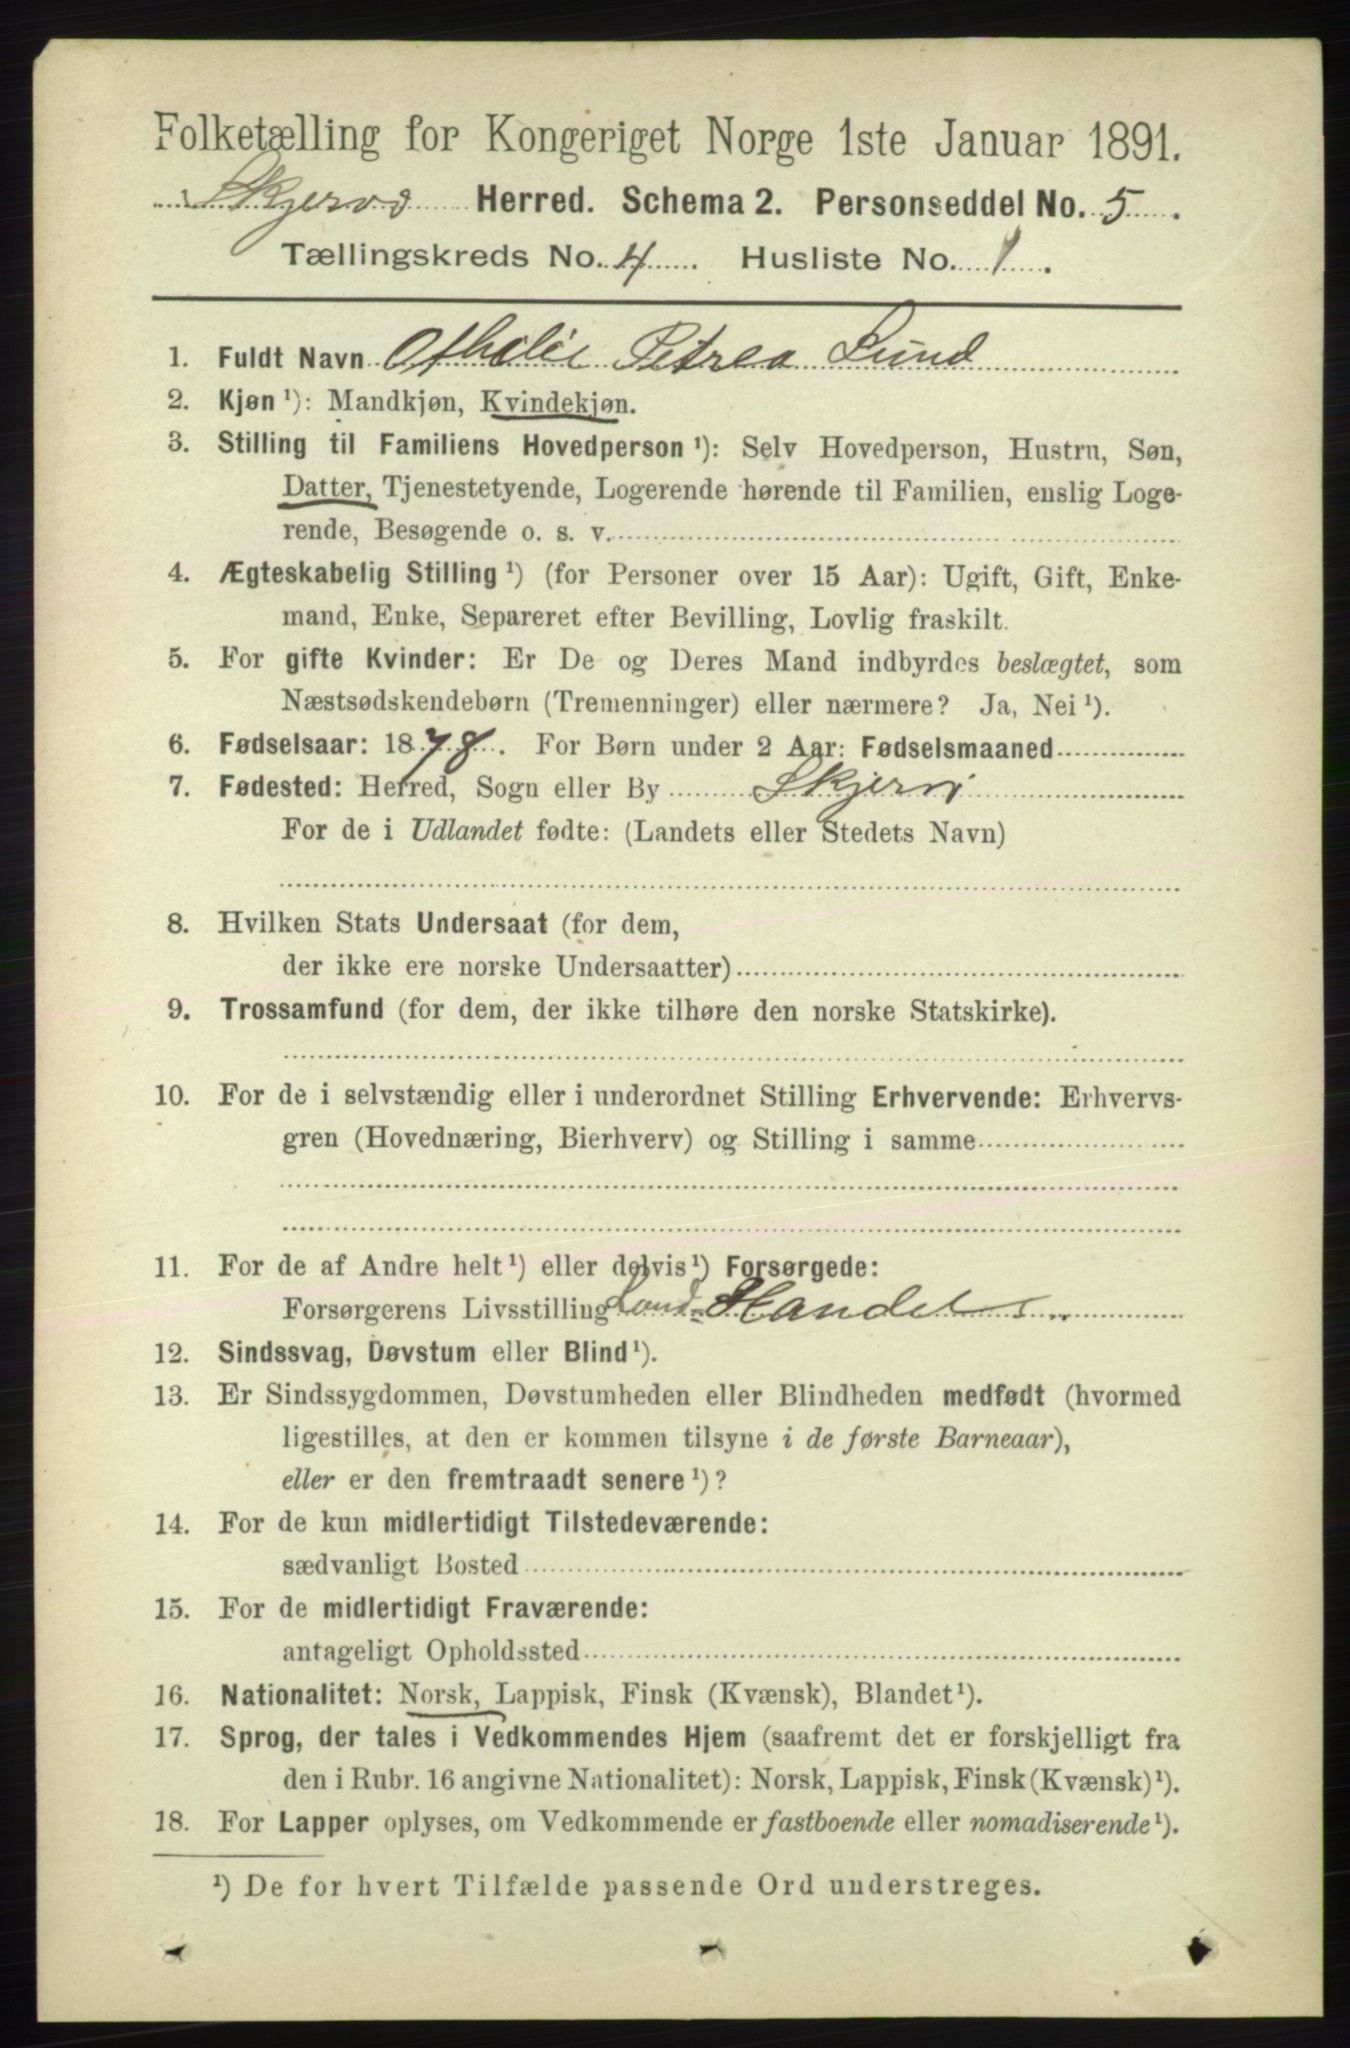 Folketælling for Kongeriget Norge 1ste Januar 1891.
Skjervø Herred. Schema 2. Personseddel No. 5.
Tællingskreds No. 4. Husliste No. 1.
1. Fuldt Navn Othelie Petrea Lund
2. Kjøn ¹): Mandkjøn, Kvindekjøn.
3. Stilling til Familiens Hovedperson ¹): Selv Hovedperson, Hustru, Søn,
Datter, Tjenestetyende, Logerende hørende til Familien, enslig Loge-
rende, Besøgende o. s. v.
4. Ægteskabelig Stilling ¹) (for Personer over 15 Aar): Ugift, Gift, Enke-
mand, Enke, Separeret efter Bevilling, Lovlig fraskilt.
5. For gifte Kvinder: Er De og Deres Mand indbyrdes beslægtet, som
Næstsødskendebørn (Tremenninger) eller nærmere? Ja, Nei ¹).
6. Fødselsaar: 1878. For Børn under 2 Aar: Fødselsmaaned
7. Fødested: Herred, Sogn eller By Skjervø
For de i Udlandet fødte: (Landets eller Stedets Navn)
8. Hvilken Stats Undersaat (for dem,
der ikke ere norske Undersaatter)
9. Trossamfund (for dem, der ikke tilhøre den norske Statskirke).
10. For de i selvstændig eller i underordnet Stilling Erhvervende: Erhvervs-
gren (Hovednæring, Bierhverv) og Stilling i samme
11. For de af Andre helt ¹) eller delvis ¹) Forsørgede:
Forsørgerens Livsstilling Land-Handel
12. Sindssvag, Døvstum eller Blind ¹).
13. Er Sindssygdommen, Døvstumheden eller Blindheden medfødt (hvormed
ligestilles, at den er kommen tilsyne i de første Barneaar),
eller er den fremtraadt senere ¹)?
14. For de kun midlertidigt Tilstedeværende:
sædvanligt Bosted
15. For de midlertidigt Fraværende:
antageligt Opholdssted
16. Nationalitet: Norsk, Lappisk, Finsk (Kvænsk), Blandet ¹).
17. Sprog, der tales i Vedkommendes Hjem (saafremt det er forskjelligt fra
den i Rubr. 16 angivne Nationalitet): Norsk, Lappisk, Finsk (Kvænsk) ¹).
18. For Lapper oplyses, om Vedkommende er fastboende eller nomadiserende ¹).
¹) De for hvert Tilfælde passende Ord understreges.